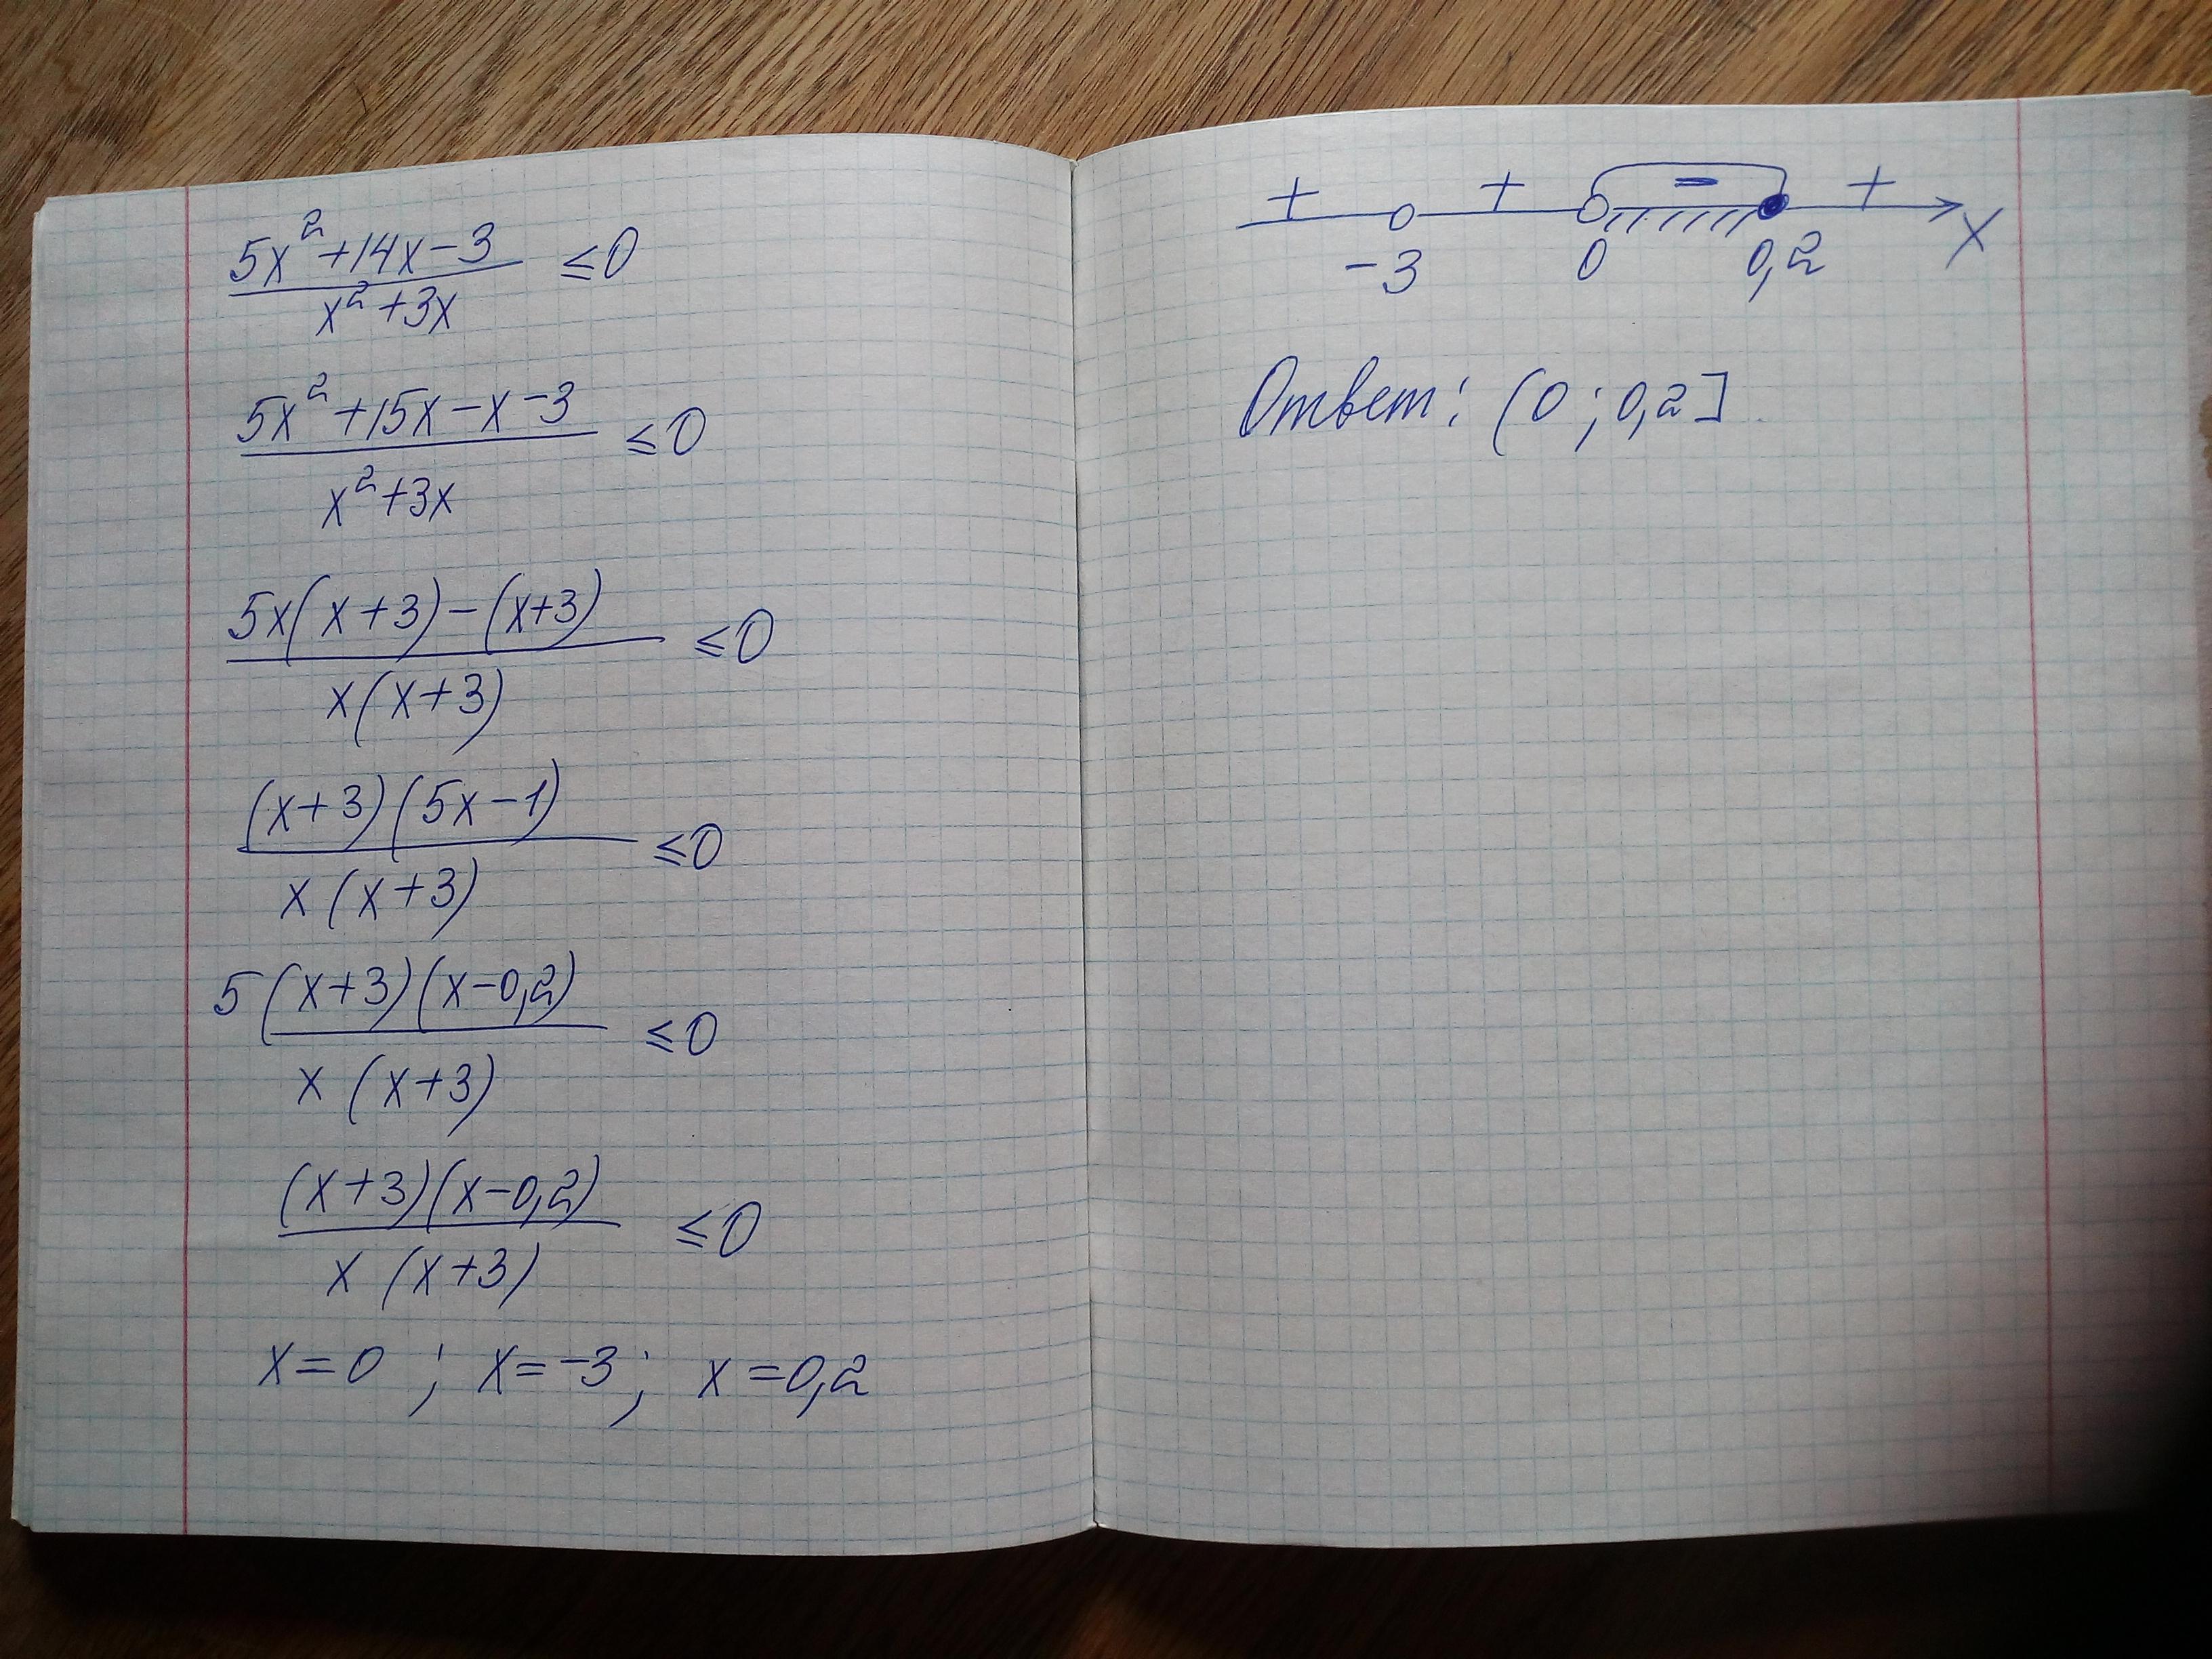 5x² + 14x − 3
x² + 3x
≤ 0
5x² + 15x − x − 3
x² + 3x
≤ 0
5x(x + 3) − (x + 3)
x(x + 3)
≤ 0
(x + 3)(5x − 1)
x(x + 3)
≤ 0
5(x + 3)(x − 0,2)
x(x + 3)
≤ 0
(x + 3)(x − 0,2)
x(x + 3)
≤ 0
x = 0 ; x = −3 ; x = 0,2
+ + − +
−3 0 0,2 x
Ответ: (0 ; 0,2]